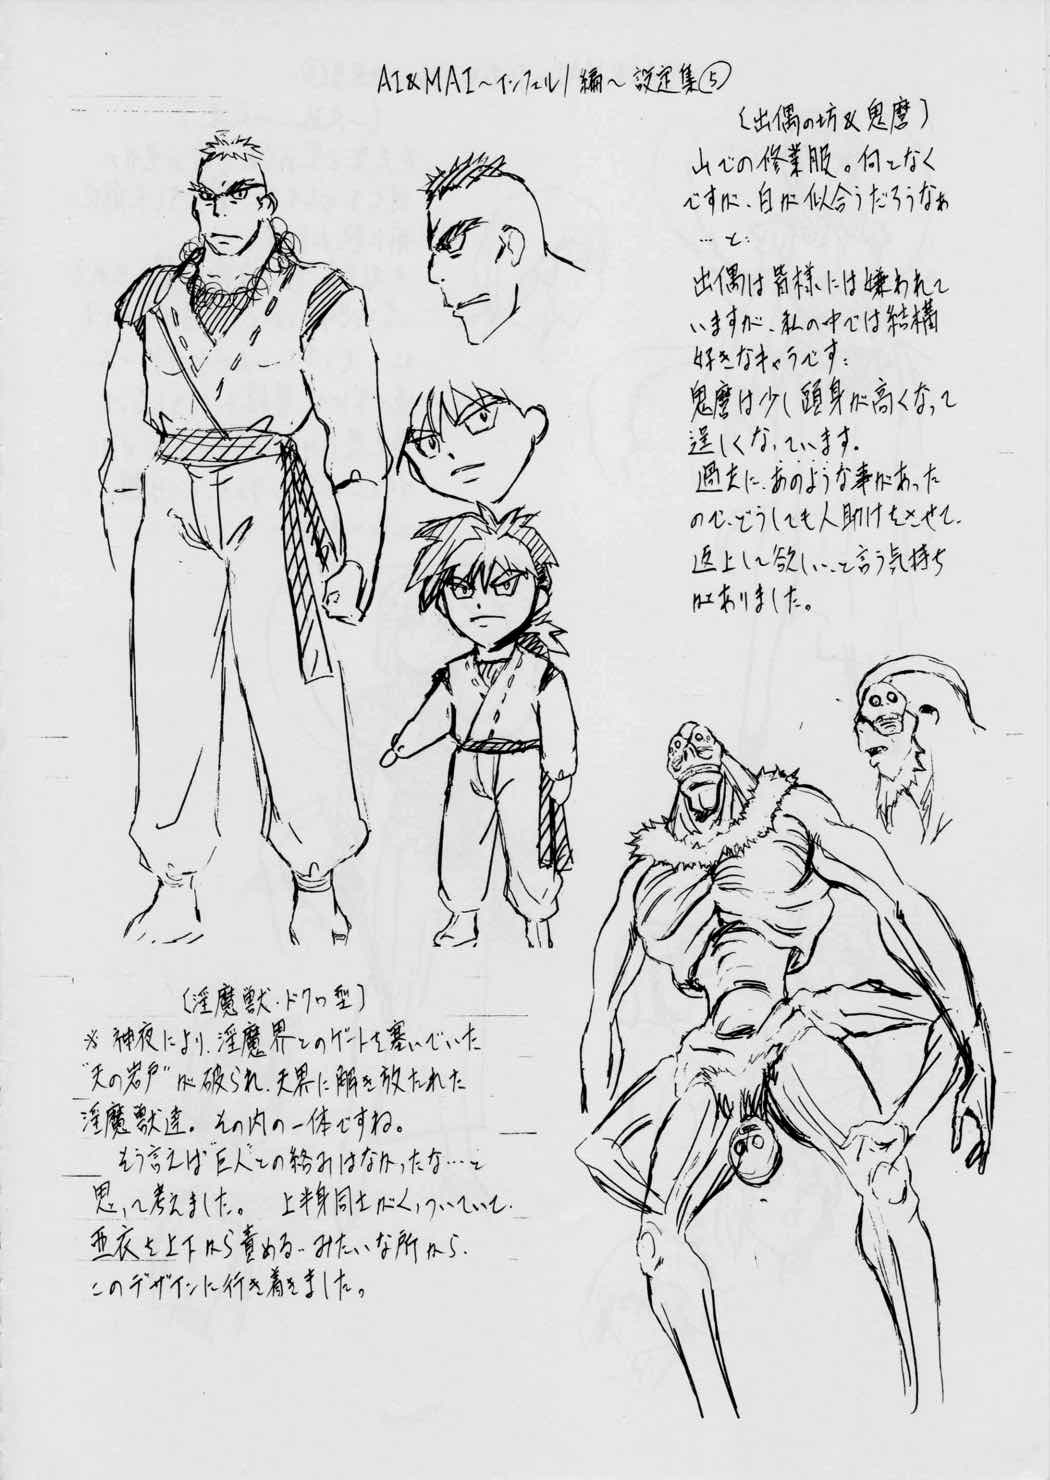 AI&MAI～インフェルノ編～ 設定集⑤
(出偶の坊&鬼麿)
山での修業服。何となく
ですが、白が似合うだろうなぁ
…と:
出偶は皆様には嫌われて
いますが、私の中では結構
好きなキャラです:
鬼麿は少し頭身が高くなって
逞しくなっています。
過去に、あのような事があった
ので、どうしても人助けをさせて、
返上して欲しい…と言う気持ち
がありました。
(淫魔獣・ドクロ型)
※神夜により、淫魔界とのゲートを塞いでいた
"天の岩戸"が破られ、天界に解き放たれた
淫魔獣達。その内の一体ですね。
もう言えば"巨人"との絡みはなかったな…と
思って考えました。 上半身同士がくっついていて、
亜衣を上下から責める…みたいな所から、
このデザインに行き着きました。